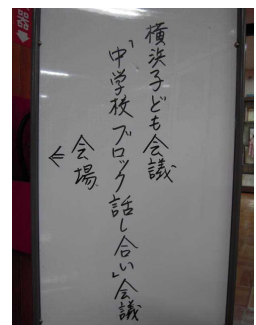 横浜子ども会議
「中学校ブロック話し合い」会議
会場
←